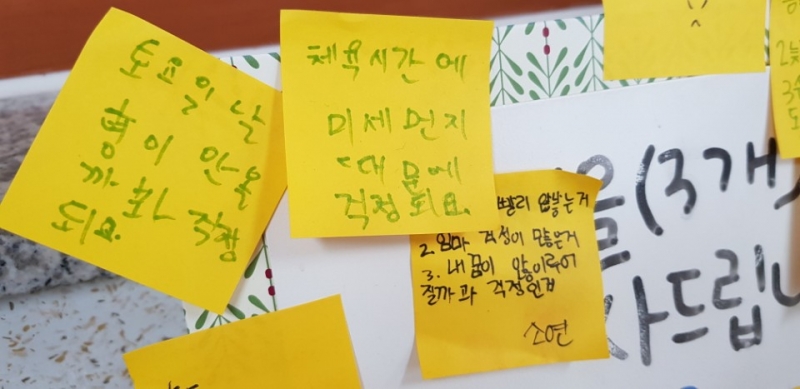 토요일 날
형이 안올
까봐 걱정
되요.
체육시간에
미세먼지
때문에
걱정되요.
빨리 않낳는거
2. 엄마 걱정이 많은거
3. 내꿈이 않이루어
질까과 걱정인것
소연
을(3개
사드립니